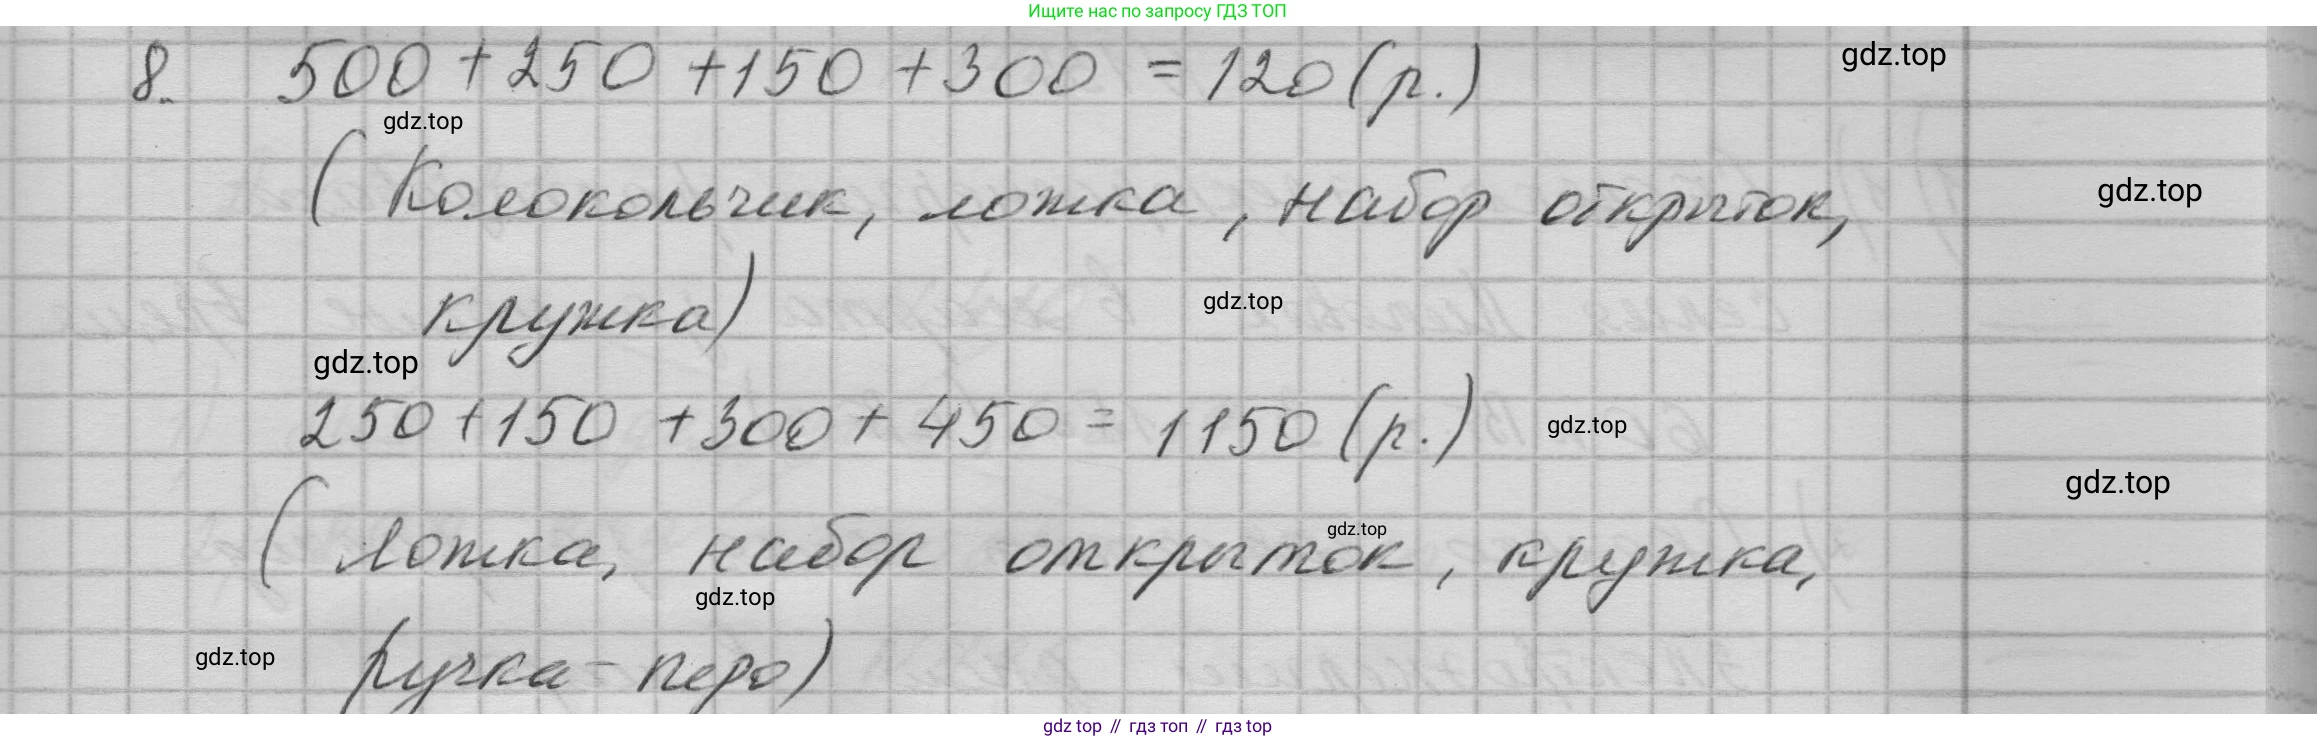 Ищите нас по запросу ГДЗ ТОП
8. 500 + 250 + 150 + 300 = 120 (р.)
gdz.top
gdz.top
( Колокольчик, ложка, набор открыток,
gdz.top
кружка)
gdz.top
gdz.top
250 + 150 + 300 + 450 = 1150 (р.)
gdz.top
gdz.top
( ложка, набор открыток, кружка,
gdz.top
gdz.top
ручка - перо)
gdz.top
gdz top // гдз топ // гдз top